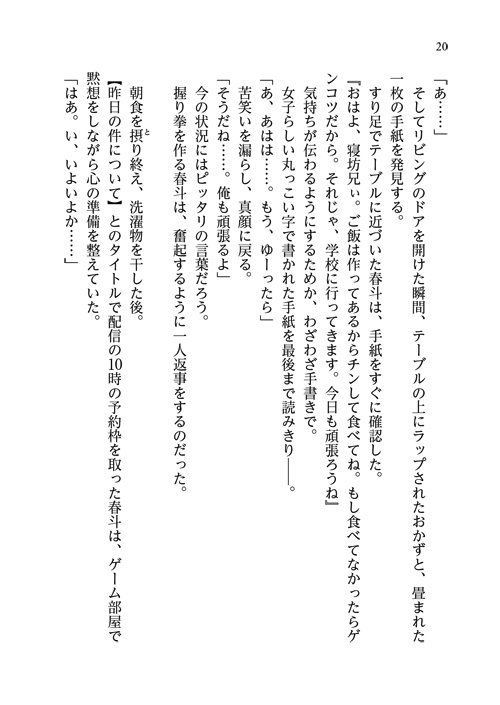 20
「あ……」
　そしてリビングのドアを開けた瞬間、テーブルの上にラップされたおかずと、畳まれた
一枚の手紙を発見する。
　すり足でテーブルに近づいた春斗は、手紙をすぐに確認した。
『おはよ、寝坊兄ぃ。ご飯は作ってあるからチンして食べてね。もし食べてなかったらゲ
ンコツだから。それじゃ、学校に行ってきます。今日も頑張ろうね』
　気持ちが伝わるようにするためか、わざわざ手書きで。
　女子らしい丸っこい字で書かれた手紙を最後まで読みきり――。
「あ、あはは……。もう、ゆーったら」
　苦笑いを漏らし、真顔に戻る。
「そうだね……。俺も頑張るよ」
　今の状況にはピッタリの言葉だろう。
　握り拳を作る春斗は、奮起するように一人返事をするのだった。
　朝食を摂り終え、洗濯物を干した後。
【昨日の件について】とのタイトルで配信の10時の予約枠を取った春斗は、ゲーム部屋で
黙想をしながら心の準備を整えていた。
「はあ。い、いよいよか……」